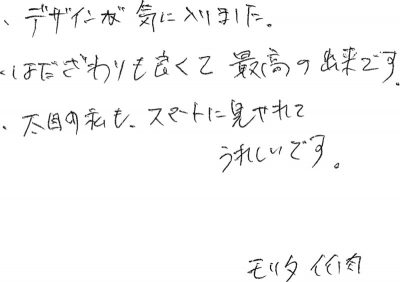 、デザインが気に入りました。
・はだざわりも良くて最高の出来です。
・太目の私も、スマートに見せれて
うれしいです。
モリタ